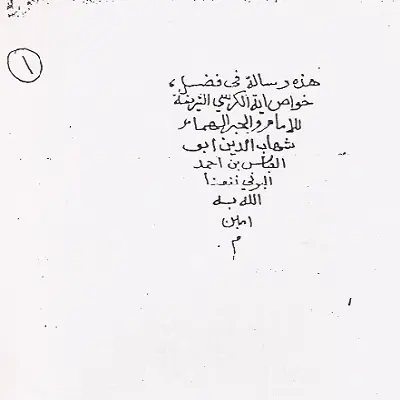 ١
هذه رسالة في فضل
خواص اية الكرسي الشريفة
للإمام والحبر الهمام
شهاب الدين ابو
العباس بن احمد
البوني نفعنا
الله به
امين
م